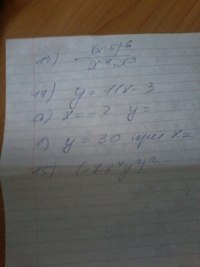 13) (x⁵)⁶ / x⁴·x³
14) y = 11x - 3
а) x = -2 y =
б) y = 30 при x =
15) (-7x⁴y)²